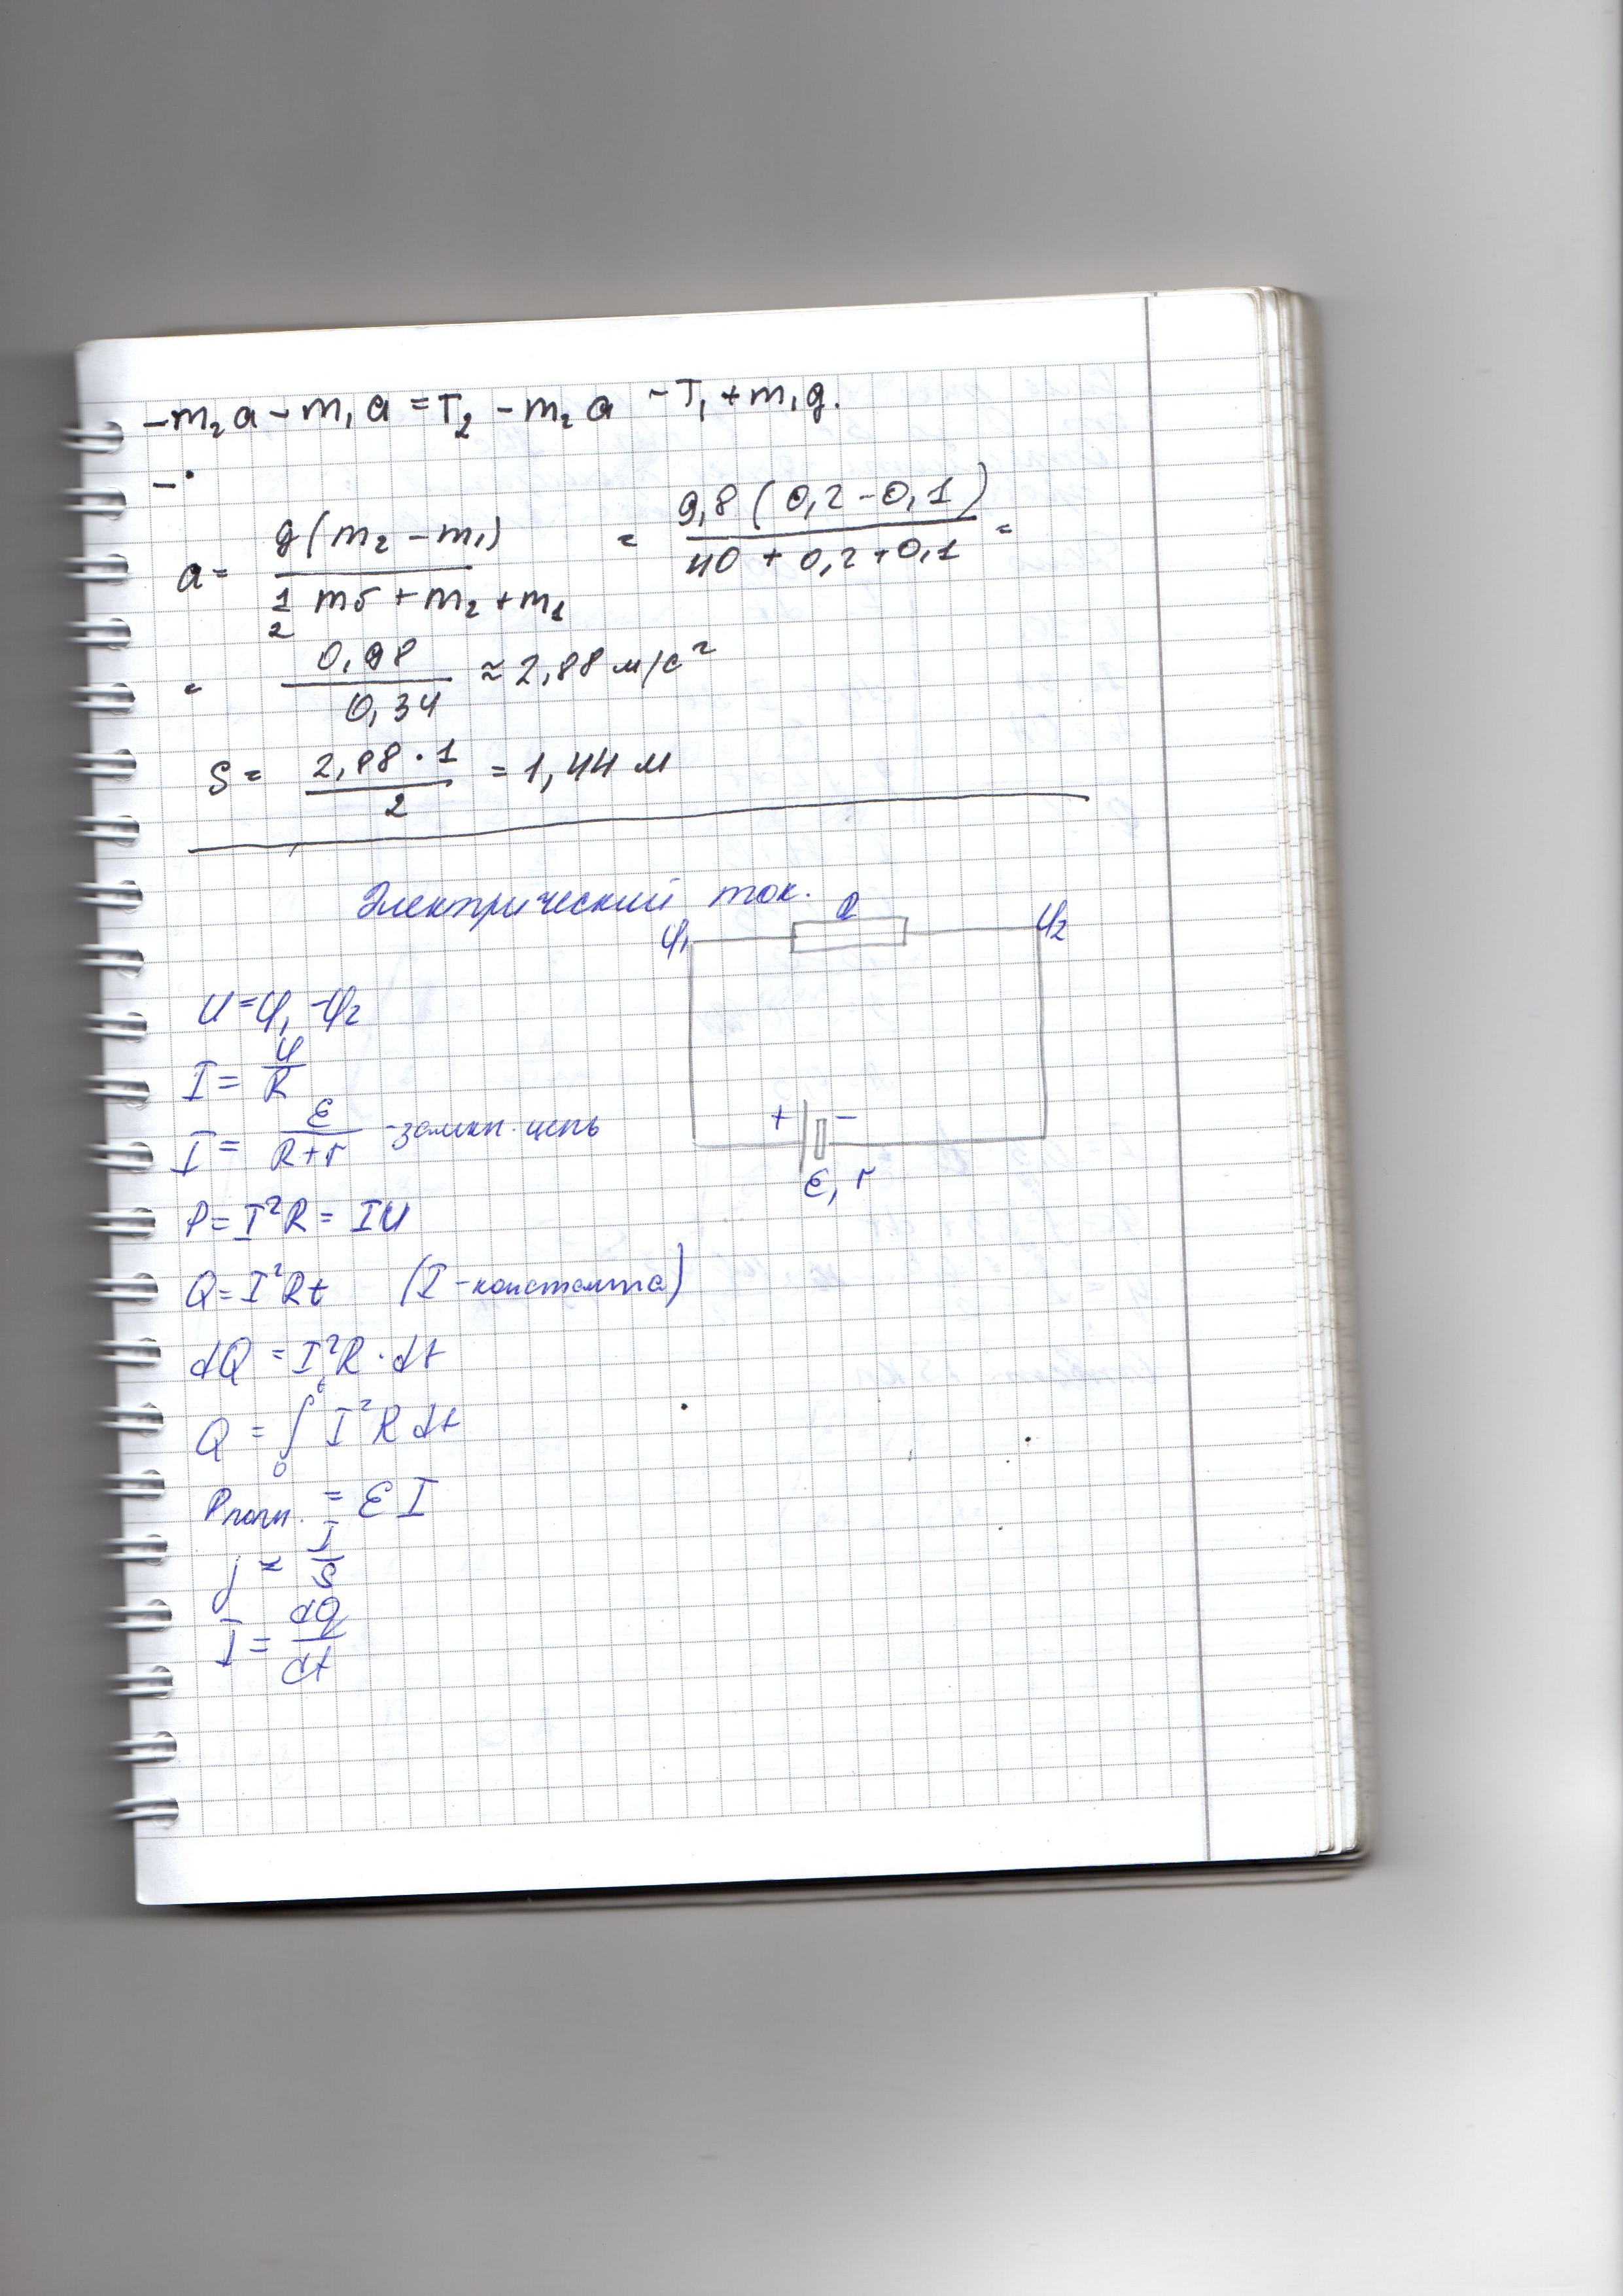 -m₂a - m₁a = T₂ - m₂a - T₁ + m₁g.
-·
a = g(m₂ - m₁) / (1/2 mб + m₂ + m₁) = 9,8(0,2-0,1) / (40 + 0,2 + 0,1) =
= 0,98 / 0,34 ≈ 2,88 м/с²
S = 2,88·1 / 2 = 1,44 м
Электрический ток.
φ₁ R φ₂
U = φ₁ - φ₂
I = U/R
I = ε/(R+r) - замкн. цепь
+ -
ε, r
P = I²R = IU
Q = I²Rt (I - константа)
dQ = I²R · dt
Q = ∫₀ᵗ I²R dt
Pполн. = εI
j = I/S
I = dQ/dt